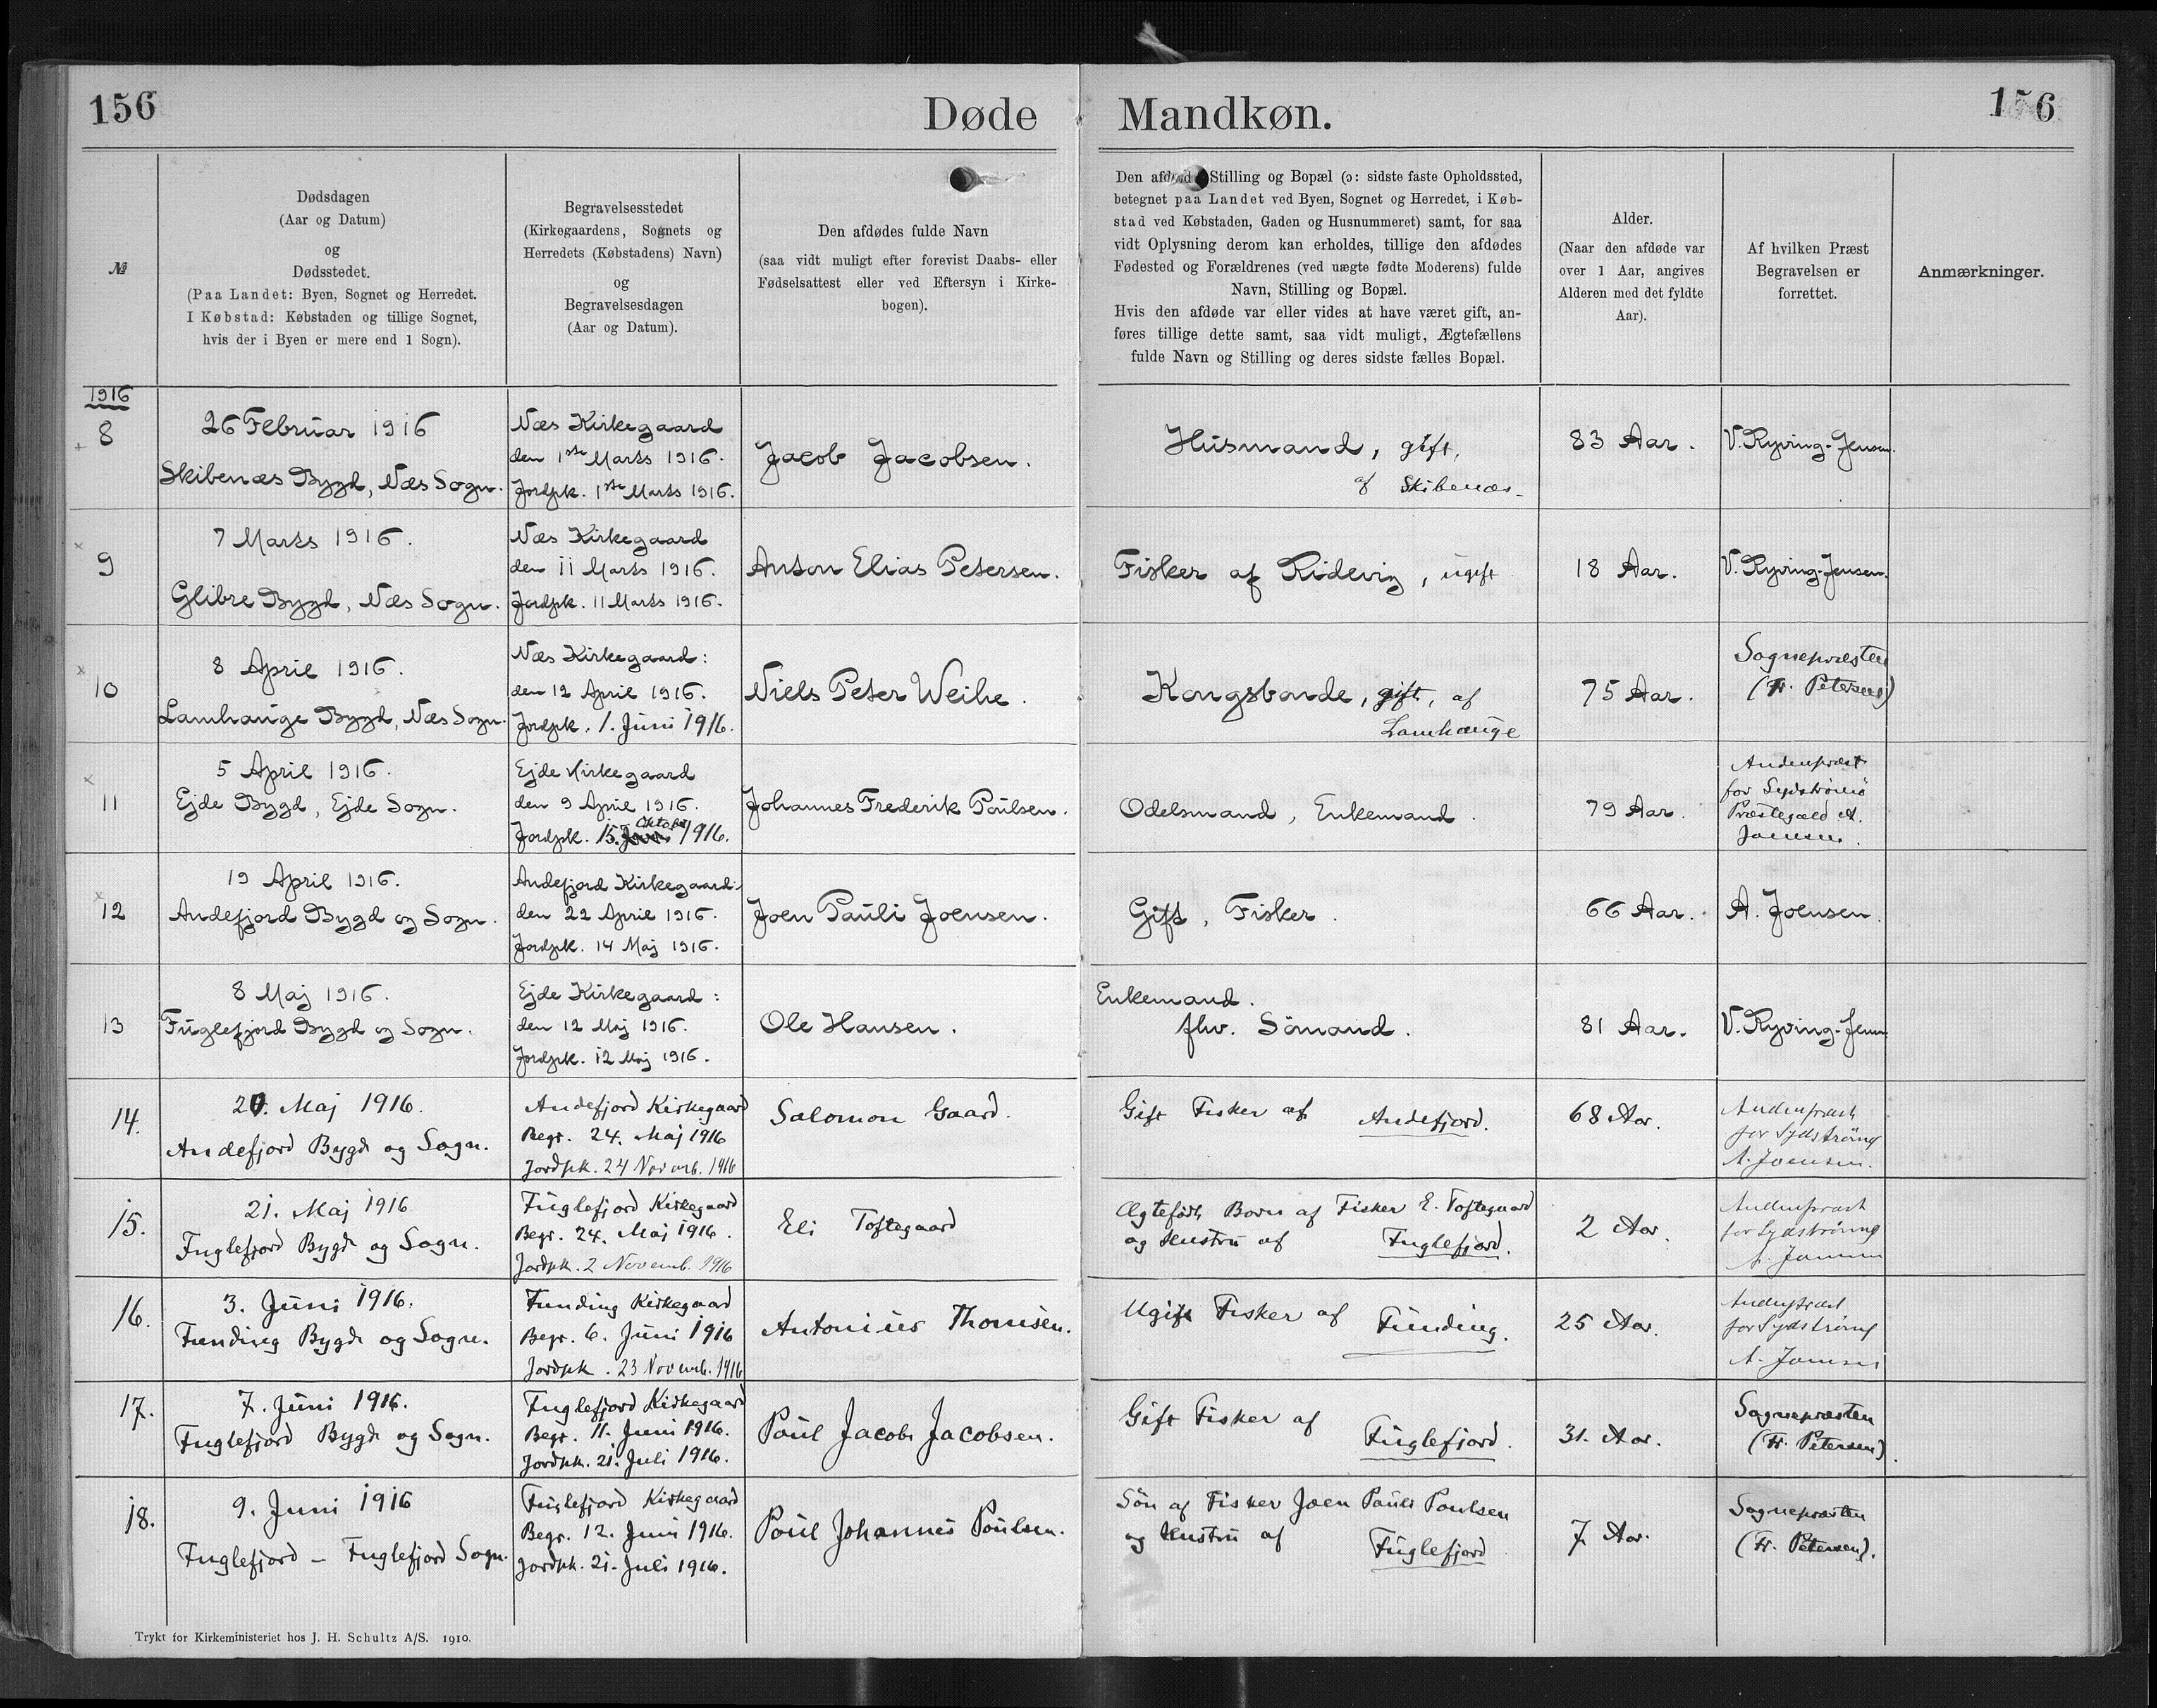 156
Døde
Mandkøn.
156
№
Dødsdagen
(Aar og Datum)
og
Dødsstedet.
(Paa Landet: Byen, Sognet og Herredet.
I Købstad: Købstaden og tillige Sognet,
hvis der i Byen er mere end 1 Sogn).
Begravelsesstedet
(Kirkegaardens, Sognets og
Herredets (Købstadens) Navn)
og
Begravelsesdagen
(Aar og Datum).
Den afdødes fulde Navn
(saa vidt muligt efter forevist Daabs- eller
Fødselsattest eller ved Eftersyn i Kirke-
bogen).
Den afdødes Stilling og Bopæl (ɔ: sidste faste Opholdssted,
betegnet paa Landet ved Byen, Sognet og Herredet, i Køb-
stad ved Købstaden, Gaden og Husnummeret) samt, for saa
vidt Oplysning derom kan erholdes, tillige den afdødes
Fødested og Forældrenes (ved uægte fødte Moderens) fulde
Navn, Stilling og Bopæl.
Hvis den afdøde var eller vides at have været gift, an-
føres tillige dette samt, saa vidt muligt, Ægtefællens
fulde Navn og Stilling og deres sidste fælles Bopæl.
Alder.
(Naar den afdøde var
over 1 Aar, angives
Alderen med det fyldte
Aar).
Af hvilken Præst
Begravelsen er
forrettet.
Anmærkninger.
1916
8
26 Februar 1916
Skibenæs Bygd, Næs Sogn.
Næs Kirkegaard
den 1ste Marts 1916.
Jordpk. 1ste Marts 1916.
Jacob Jacobsen.
Husmand, gift,
af Skibenæs
83 Aar.
V. Ryving-Jensen.
9
7 Marts 1916.
Glibre Bygd, Næs Sogn.
Næs Kirkegaard
den 11 Marts 1916.
Jordpk. 11 Marts 1916.
Anton Elias Petersen.
Fisker af Ridevig, ugift
18 Aar.
V. Ryving-Jensen.
10
8 April 1916.
Lamhauge Bygd, Næs Sogn.
Næs Kirkegaard:
den 12 April 1916.
Jordpk. 1. Juni 1916.
Niels Peter Weihe.
Kongsbonde, gift, af
Lamhauge
75 Aar.
Sognepræsten
(Fr. Petersen)
11
5 April 1916.
Ejde Bygd, Ejde Sogn.
Ejde Kirkegaard
den 9 April 1916.
Oktober
Jordpk. 15. Juni 1916.
Johannes Frederik Poulsen.
Odelsmand, Enkemand.
79 Aar.
Andenpræst
for Sydstrømø
Præstegæld A.
Joensen.
12
19 April 1916.
Andefjord Bygd og Sogn.
Andefjord Kirkegaard:
den 22 April 1916.
Jordpk. 14 Maj 1916.
Joen Pauli Joensen.
Gift, Fisker.
66 Aar.
A. Joensen.
13
8 Maj 1916.
Fuglefjord Bygd og Sogn.
Ejde Kirkegaard:
den 12 Maj 1916.
Jordpk. 12 Maj 1916.
Ole Hansen.
Enkemand.
fhv. Sömand.
81 Aar.
V. Ryving-Jensen
14.
20. Maj 1916.
Andefjord Bygd og Sogn.
Andefjord Kirkegaard
Begr. 24. Maj 1916
Jordpk. 24 Novemb. 1916
Salomon Gaard.
Gift Fisker af Andefjord.
68 Aar.
Andenpræst
for Sydstrømø
A. Joensen.
15.
21. Maj 1916
Fuglefjord Bygd og Sogn.
Fuglefjord Kirkegaard
Begr. 24. Maj 1916.
Jordpk. 2 Novemb. 1916
Eli Toftegaard
Ægtefødt Barn af Fisker E. Toftegaard
og Hustru af Fuglefjord.
2 Aar.
Andenpræst
for Sydstrømø
A. Joensen
16.
3. Juni 1916.
Funding Bygd og Sogn.
Funding Kirkegaard
Begr. 6. Juni 1916
Jordpk. 23 Novemb. 1916
Antonius Thomsen.
Ugift Fisker af Funding.
25 Aar.
Andenpræst
for Sydstrømø
A. Joensen
17.
7. Juni 1916.
Fuglefjord Bygd og Sogn.
Fuglefjord Kirkegaard
Begr. 11. Juni 1916.
Jordpk. 21. Juli 1916.
Poul Jacob Jacobsen.
Gift Fisker af Fuglefjord.
31. Aar.
Sognepræsten
(Fr. Petersen).
18.
9. Juni 1916
Fuglefjord – Fuglefjord Sogn.
Fuglefjord Kirkegaard
Begr. 12. Juni 1916.
Jordpk. 21. Juli 1916.
Poul Johannes Poulsen.
Sön af Fisker Joen Pauli Poulsen
og Hustru af Fuglefjord
7 Aar.
Sognepræsten
(Fr. Petersen).
Trykt for Kirkeministeriet hos J. H. Schultz A/S. 1910.